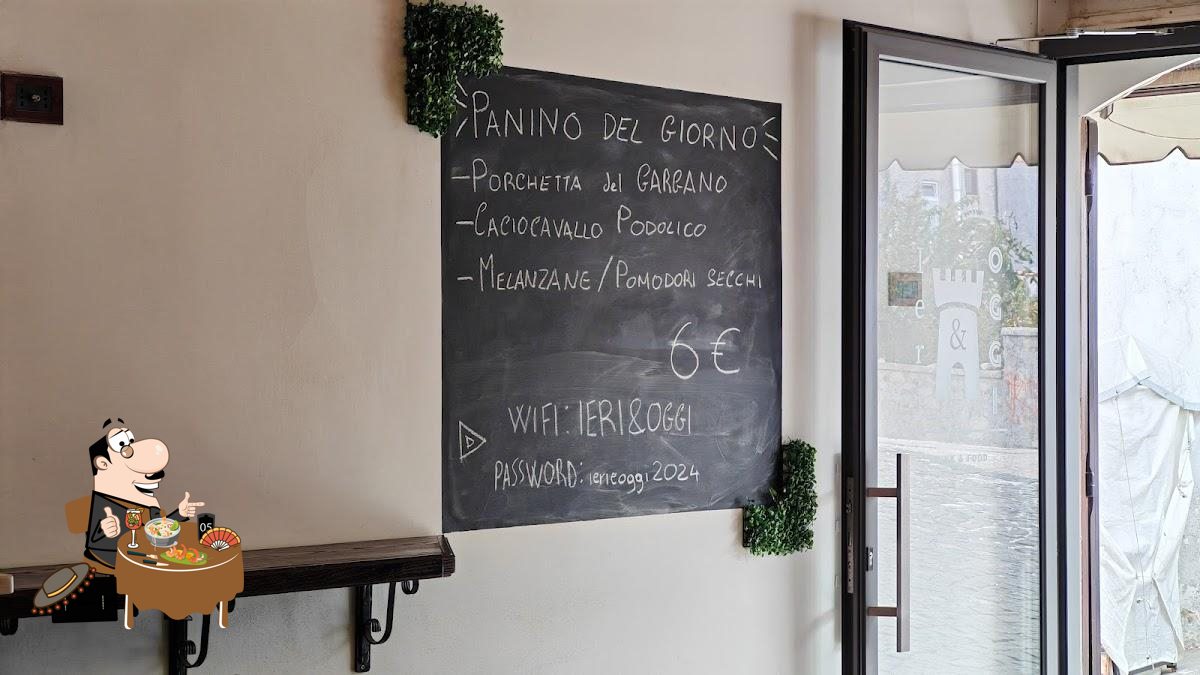 PANINO DEL GIORNO
- PORCHETTA del GARGANO
- CACIOCAVALLO PODOLICO
- MELANZANE / POMODORI SECCHI
6 €
WIFI: IERI&OGGI
PASSWORD: ierieoggi2024
Ier
&
OGGI
& FOOD
05